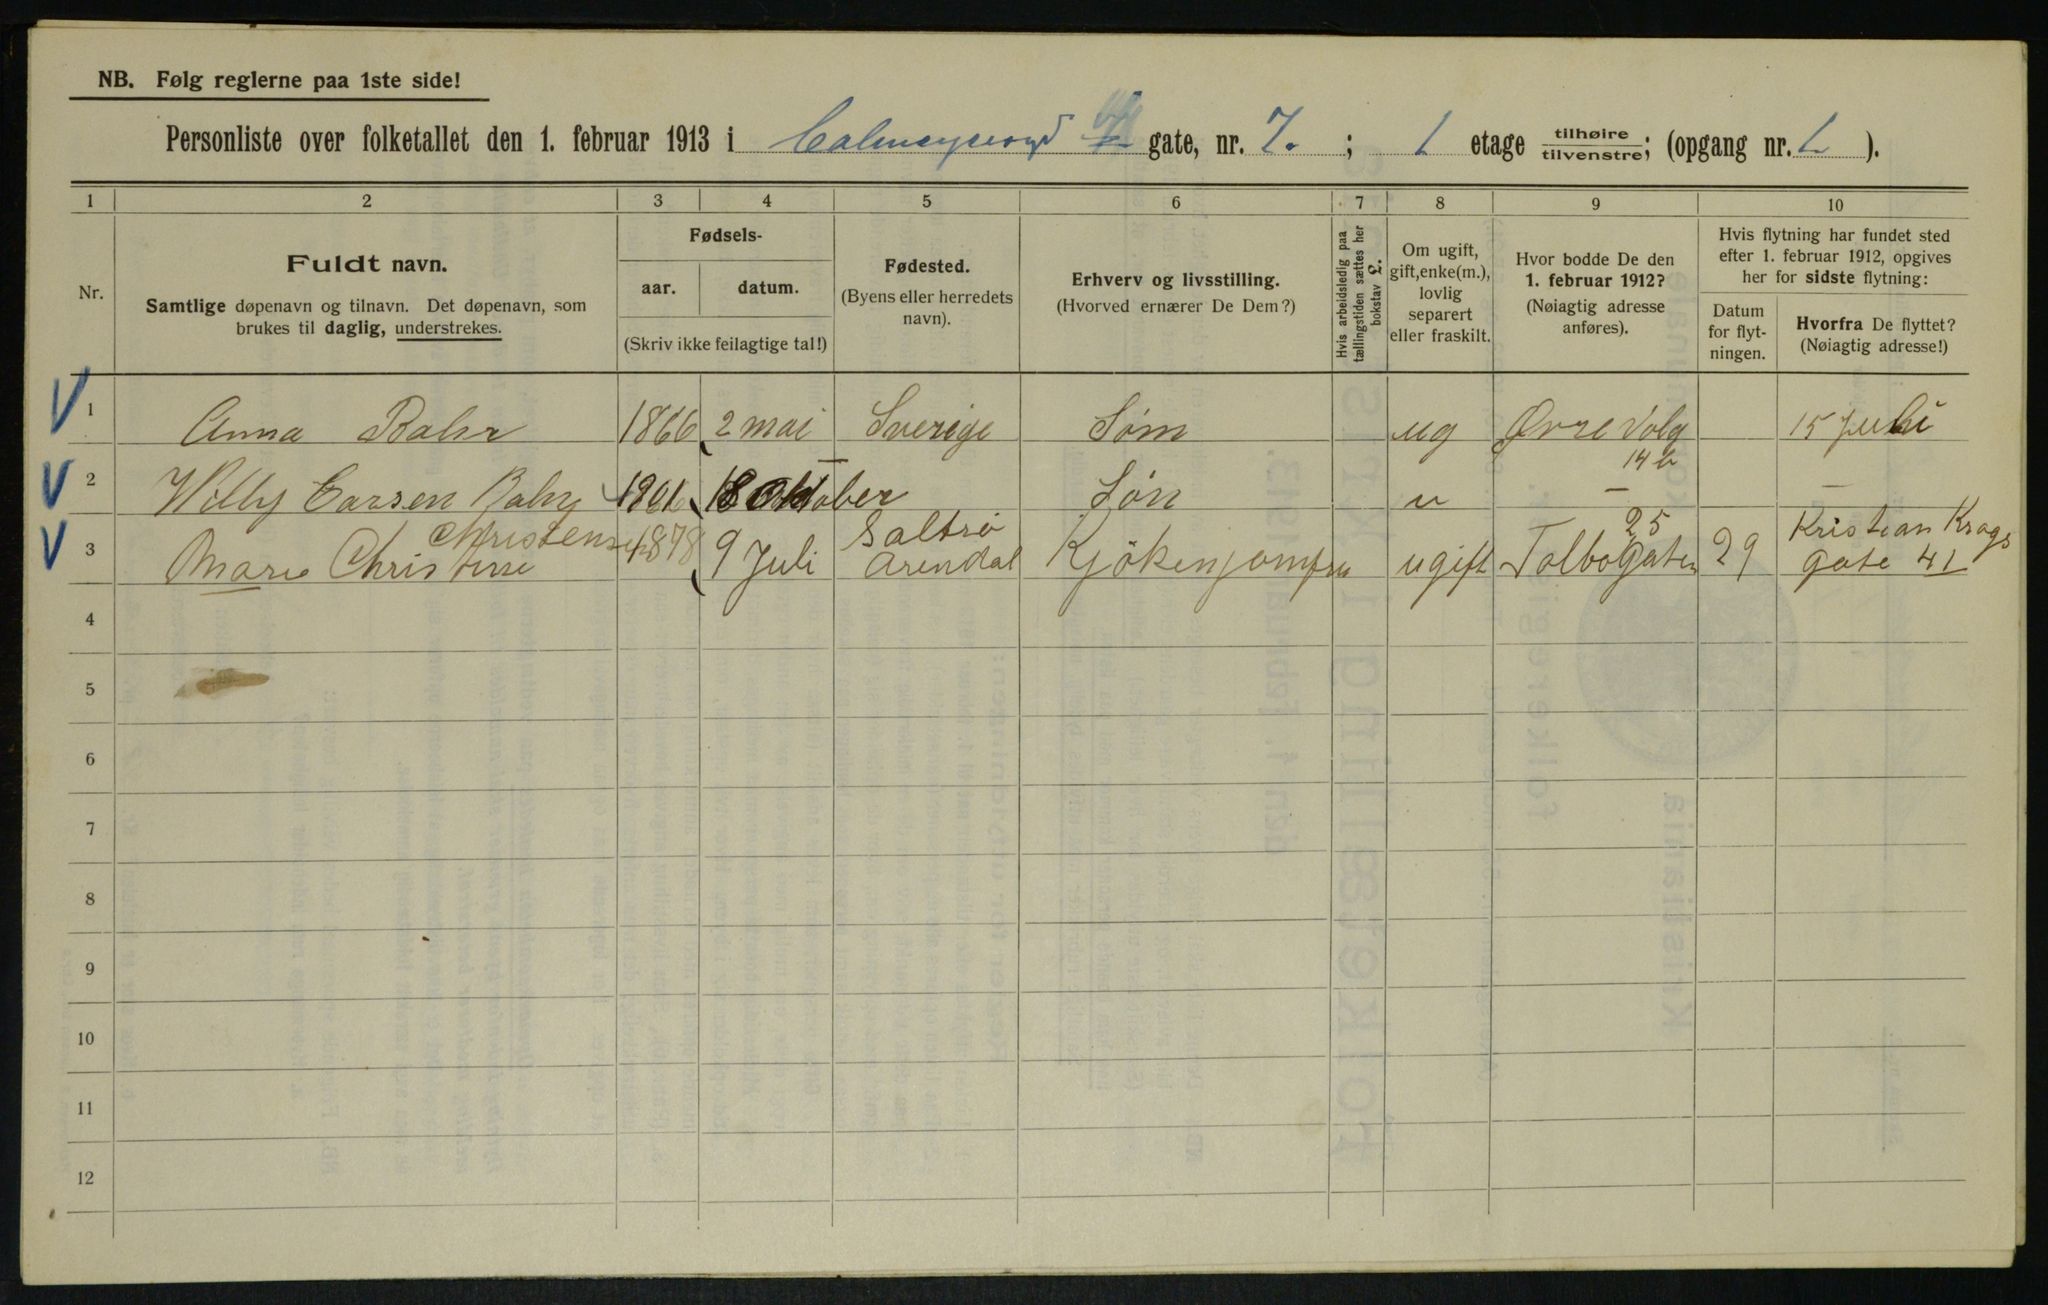 NB. Følg reglerne paa 1ste side!
Personliste over folketallet den 1. februar 1913 i Calmeyers gate, nr. 7. ; 1 etage tilhøire tilvenstre; (opgang nr. 1 ).
1 2 3 4 5 6 7 8 9 10
Nr.
Fuldt navn.
Samtlige døpenavn og tilnavn. Det døpenavn, som
brukes til daglig, understrekes.
Fødsels-
aar. datum.
(Skriv ikke feilagtige tal!)
Fødested.
(Byens eller herredets
navn).
Erhverv og livsstilling.
(Hvorved ernærer De Dem?)
Hvis arbeidsledig paa
tællingstiden sættes her
bokstav L.
Om ugift,
gift, enke(m.),
lovlig
separert
eller fraskilt.
Hvor bodde De den
1. februar 1912?
(Nøiagtig adresse
anføres).
Hvis flytning har fundet sted
efter 1. februar 1912, opgives
her for sidste flytning:
Datum
for flyt-
ningen.
Hvorfra De flyttet?
(Nøiagtig adresse!)
1 Anna Bahr 1866 2 mai Sverige Søm ug Øvre Volg 14 b 15 Juli
2 Willy Carsen Bahr 1901 18 Oktober Søn u — —
3 Marie Christine Christensen 1878 9 Juli Saltrø Arendal Kjökenjomfru ugift Tolbogaten 25 29 Kristian Krogs
gate 41
4
5
6
7
8
9
10
11
12